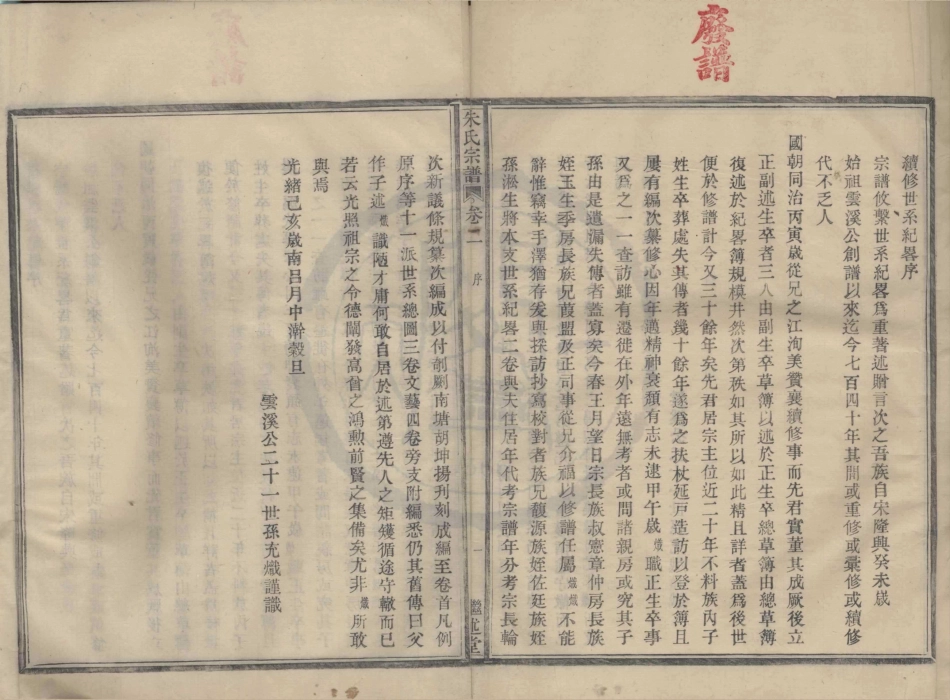 廢譜
續修世系紀畧序
宗譜攸繫世系紀畧爲重著述贈言次之吾族自宋隆興癸未歲
始祖雲溪公創譜以來迄今七百四十年其間或重修或彙修或續修
代不乏人
國朝同治丙寅歲從兄之江洵美贊襄續修事而先君實董其成厥後立
正副述生卒者三人由副生卒草簿以述於正生卒總草簿由總草簿
復述於紀畧簿規模井然次第秩如其所以如此精且詳者蓋爲後世
便於修譜計今又三十餘年矣先君居宗主位近二十年不料族內子
姓生卒葬處失其傳者幾十餘年遂爲之扶杖延戸造訪以登於簿且
屢有編次藁修心因年邁精神衰頹有志未逮甲午歲熾職正生卒事
又爲之一一查訪雖有遷徙在外年遠無考者或問諸親房或究其子
孫由是遺漏失傳者蓋寡矣今春王月望日宗長族叔憲章仲房長族
姪玉生季房長族兄葭盟及正司事從兄介福以修譜任屬熾熾不能
辭惟竊幸手澤猶存爰與採訪抄寫校對者族兄馥源族姪佐廷族姪
孫淞生將本支世系紀畧二卷與夫住居年代考宗譜年分考宗長輪
朱氏宗譜
卷二
序
一
述堂
次新議條規纂次編成以付剞劂南塘胡坤揚刋刻成編至卷首凡例
原序等十一派世系總圖三卷文藝四卷旁支附編悉仍其舊傳曰父
作子述熾識陋才庸何敢自居於述第遵先人之矩矱循途守轍而已
若云光照祖宗之令德闡發高曾之鴻勲前賢之集備矣尤非熾所敢
與焉
光緒己亥歲南呂月中澣穀旦
雲溪公二十一世孫充熾謹識